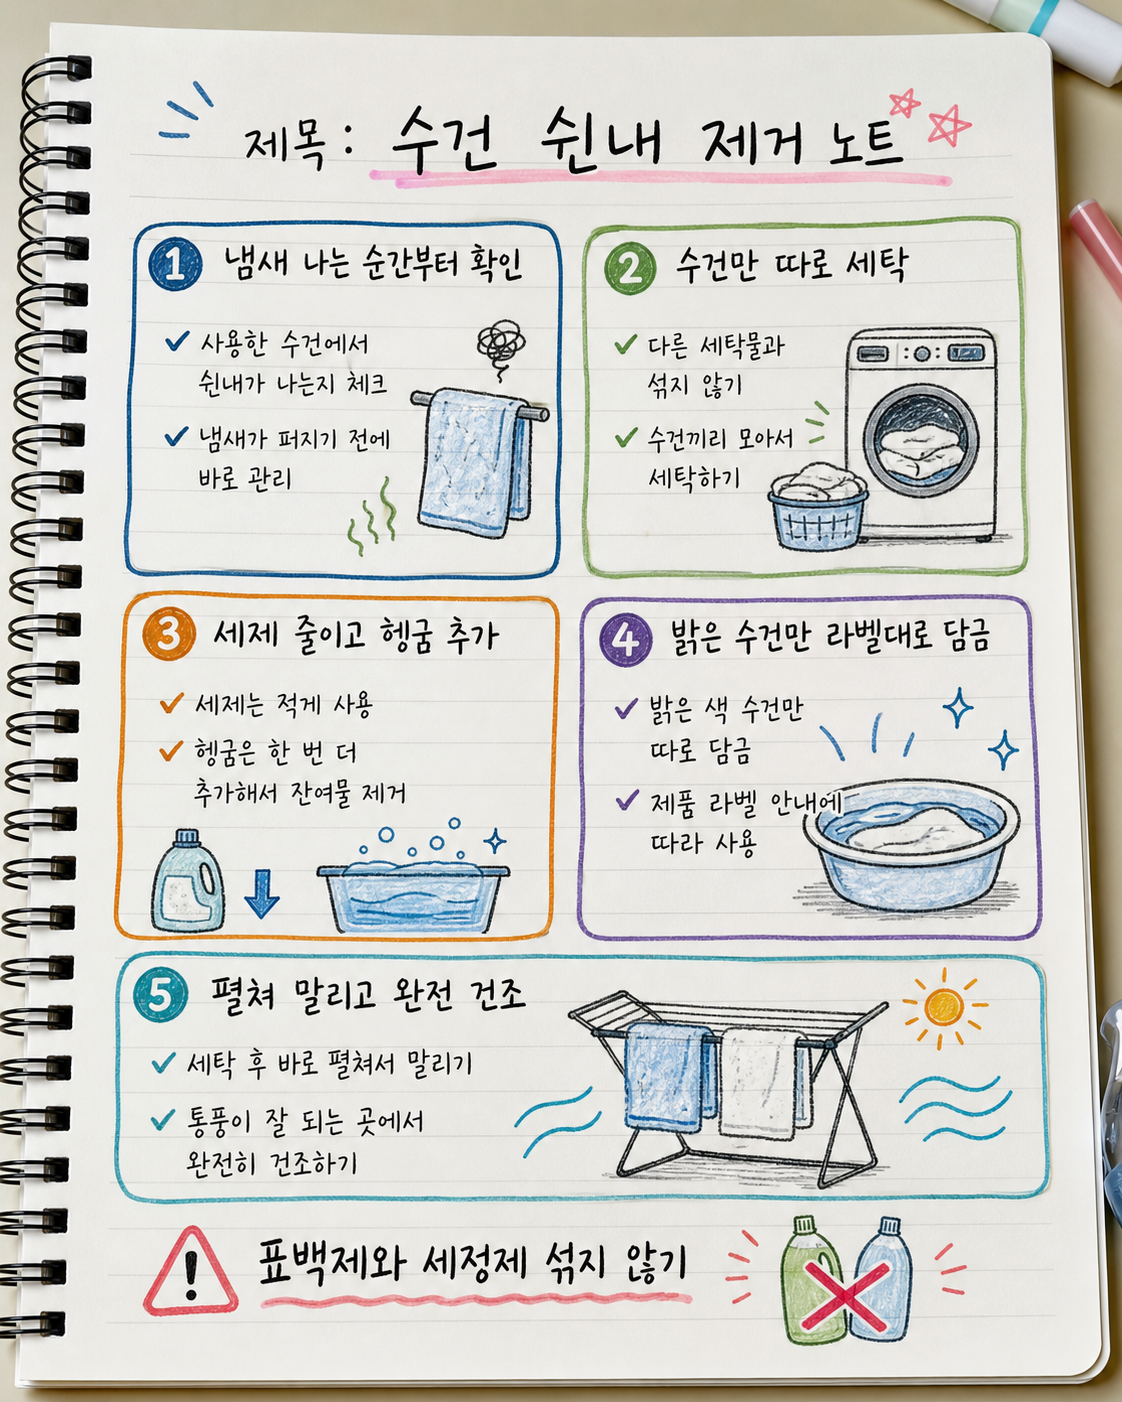 제목: 수건 쉰내 제거 노트
1 냄새 나는 순간부터 확인
사용한 수건에서
쉰내가 나는지 체크
냄새가 퍼지기 전에
바로 관리
2 수건만 따로 세탁
다른 세탁물과
섞지 않기
수건끼리 모아서
세탁하기
3 세제 줄이고 헹굼 추가
세제는 적게 사용
헹굼은 한 번 더
추가해서 잔여물 제거
4 밝은 수건만 라벨대로 담금
밝은 색 수건만
따로 담금
제품 라벨 안내에
따라 사용
5 펼쳐 말리고 완전 건조
세탁 후 바로 펼쳐서 말리기
통풍이 잘 되는 곳에서
완전히 건조하기
! 표백제와 세정제 섞지 않기